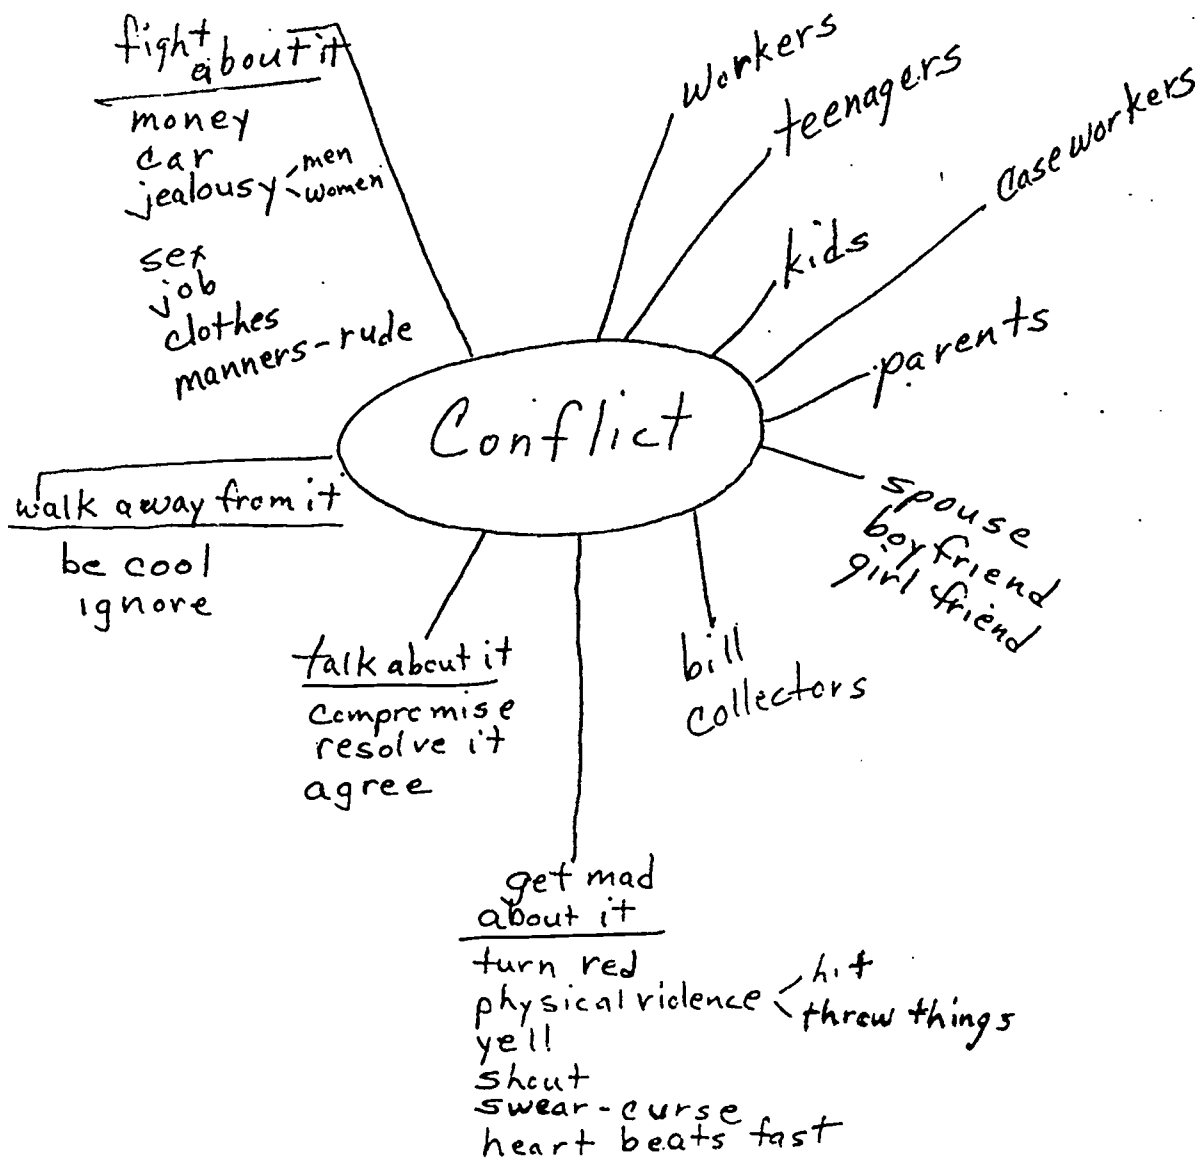 fight
about it
money
car
jealousy
men
women
sex
job
clothes
manners - rude
workers
teenagers
case workers
kids
parents
Conflict
spouse
boyfriend
girl friend
walk away from it
be cool
ignore
talk about it
compromise
resolve it
agree
bill
collectors
get mad
about it
turn red
physical violence
hit
throw things
yell
shout
swear - curse
heart beats fast